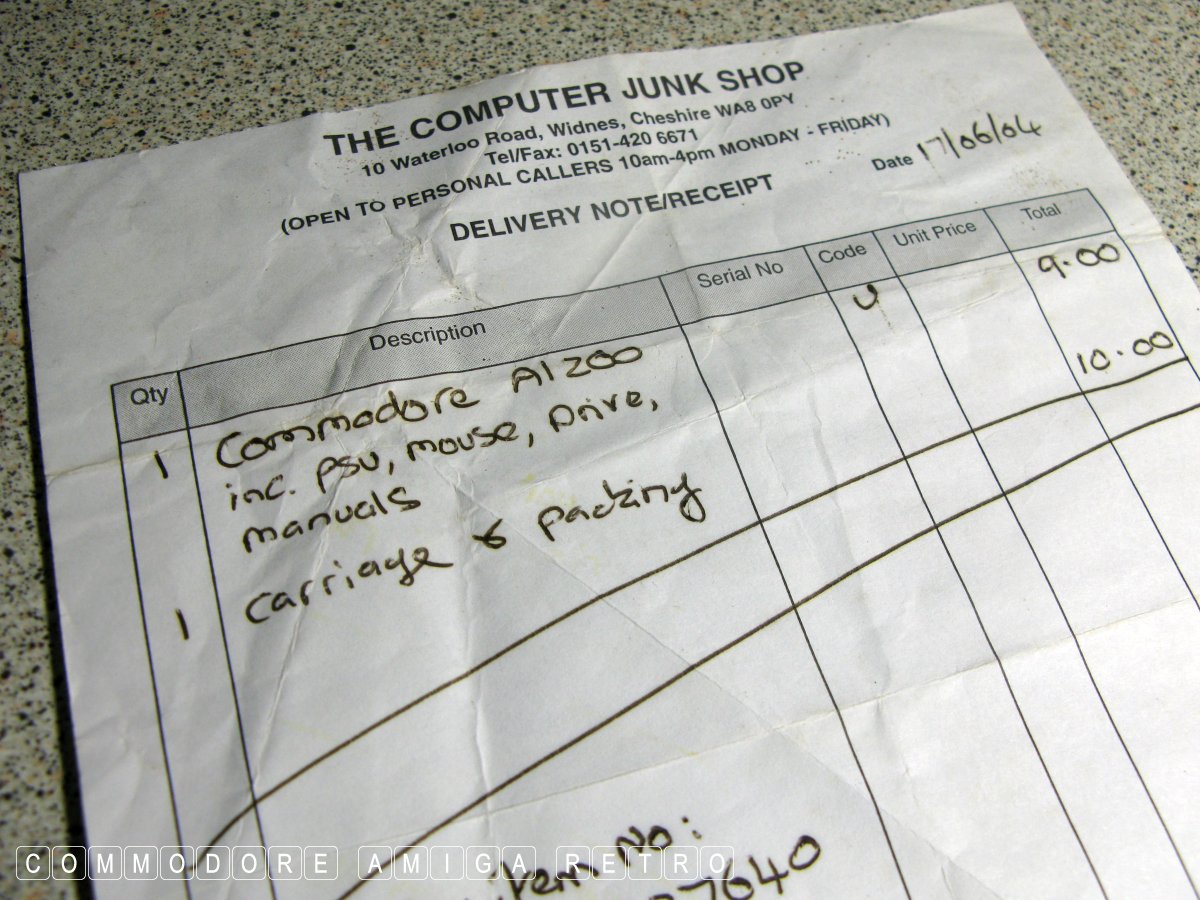 THE COMPUTER JUNK SHOP
10 Waterloo Road, Widnes, Cheshire WA8 0PY
Tel/Fax: 0151-420 6671
(OPEN TO PERSONAL CALLERS 10am-4pm MONDAY - FRIDAY)
DELIVERY NOTE/RECEIPT
Date 17/06/04
Qty Description Serial No Code Unit Price Total
1 Commodore A1200 U 9.00
inc. PSU, mouse, Drive,
manuals
1 carriage & packing 10.00
Item No:
7040
COMMODORE AMIGA RETRO